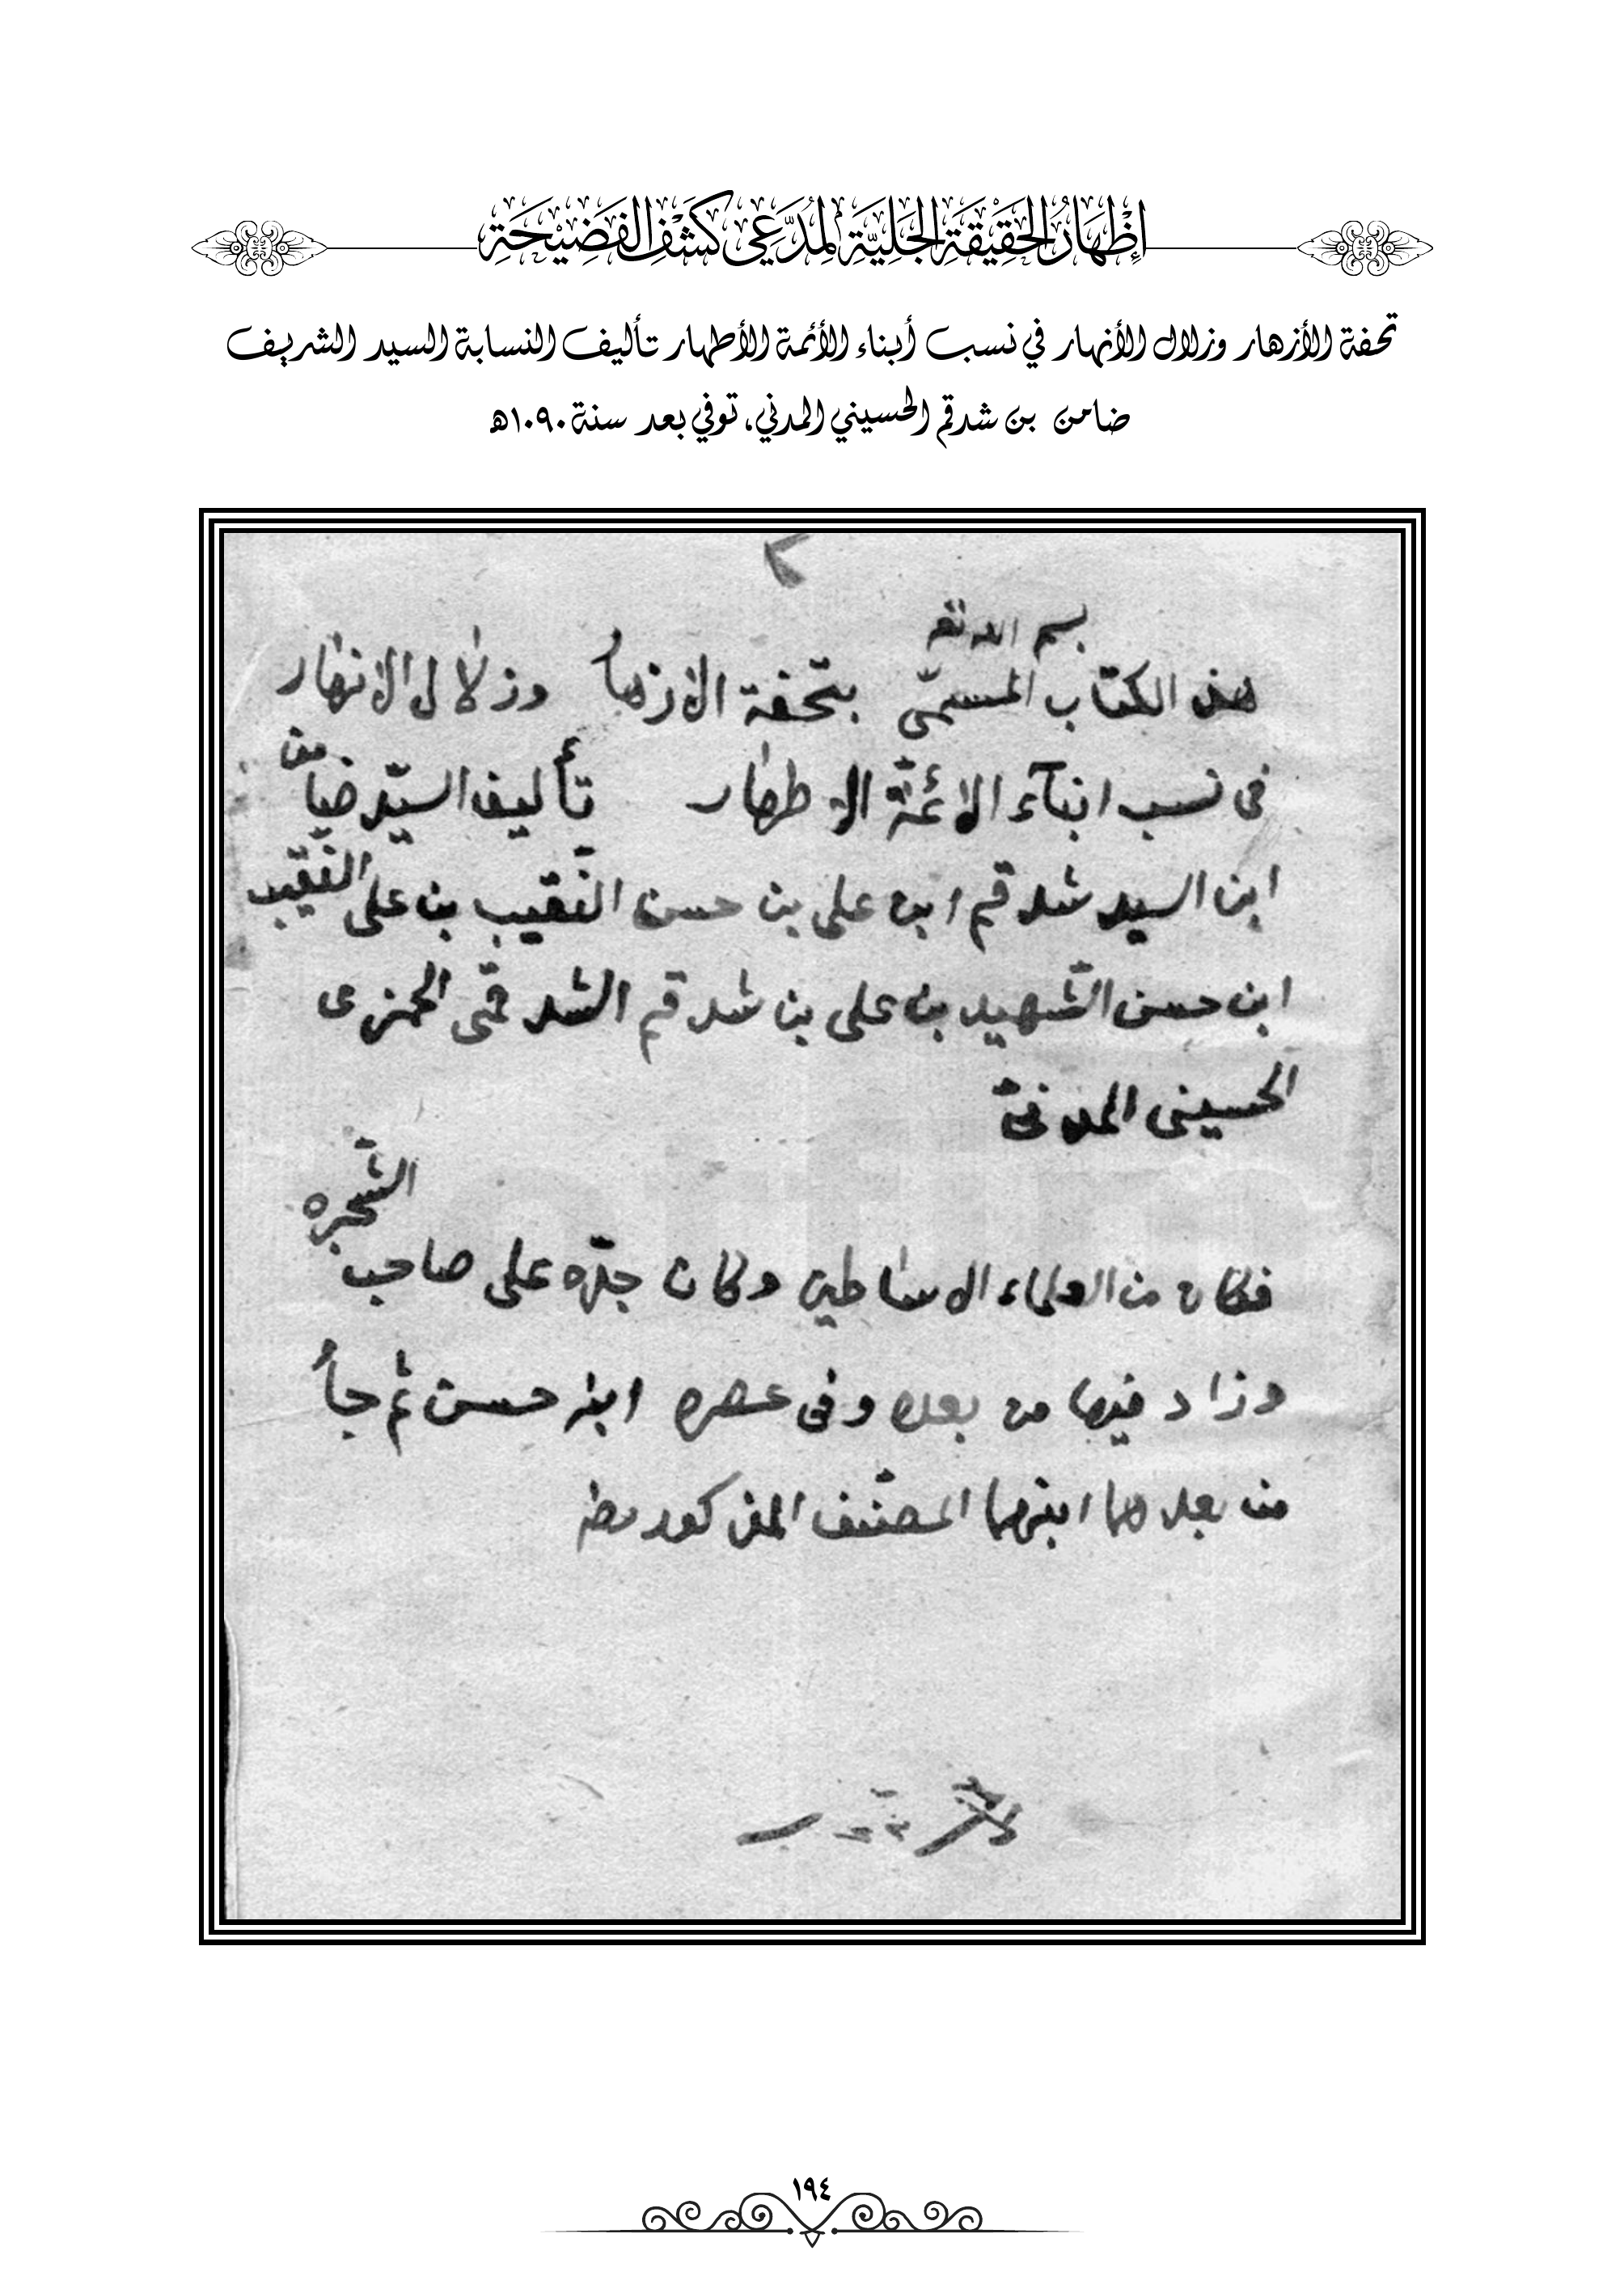 إِظْهَارُ الحَقِيْقَةِ الجَلِيَّةِ لِمُدَّعِي كَشْفِ الفَضِيْحَةِ
تحفة الأزهار وزلال الأنهار في نسب أبناء الأئمة الأطهار تأليف النسابة السيد الشريف
ضامن بن شدقم الحسيني المدني، توفي بعد سنة ١٠٩٠هـ
بسم الله تع
هذا الكتاب المسمّى بتحفة الازهار وزلال الانهار
فى نسب ابنآء الائمّة الاطهار تأليف السيّد ضامن
ابن السيد شدقم ابن على بن حسن النّقيب بن على النّقيب
ابن حسن الشّهيد بن على بن شدقم الشدقمى الحمزى
الحسينى المدنىّ
فكان من العلماء الاساطين وكان جدّه على صاحب الشّجره
وزاد فيها من بعده وفى عصره ابنه حسن ثم جاء
من بعدهما ابنهما المصنّف المذكور
١٩٤